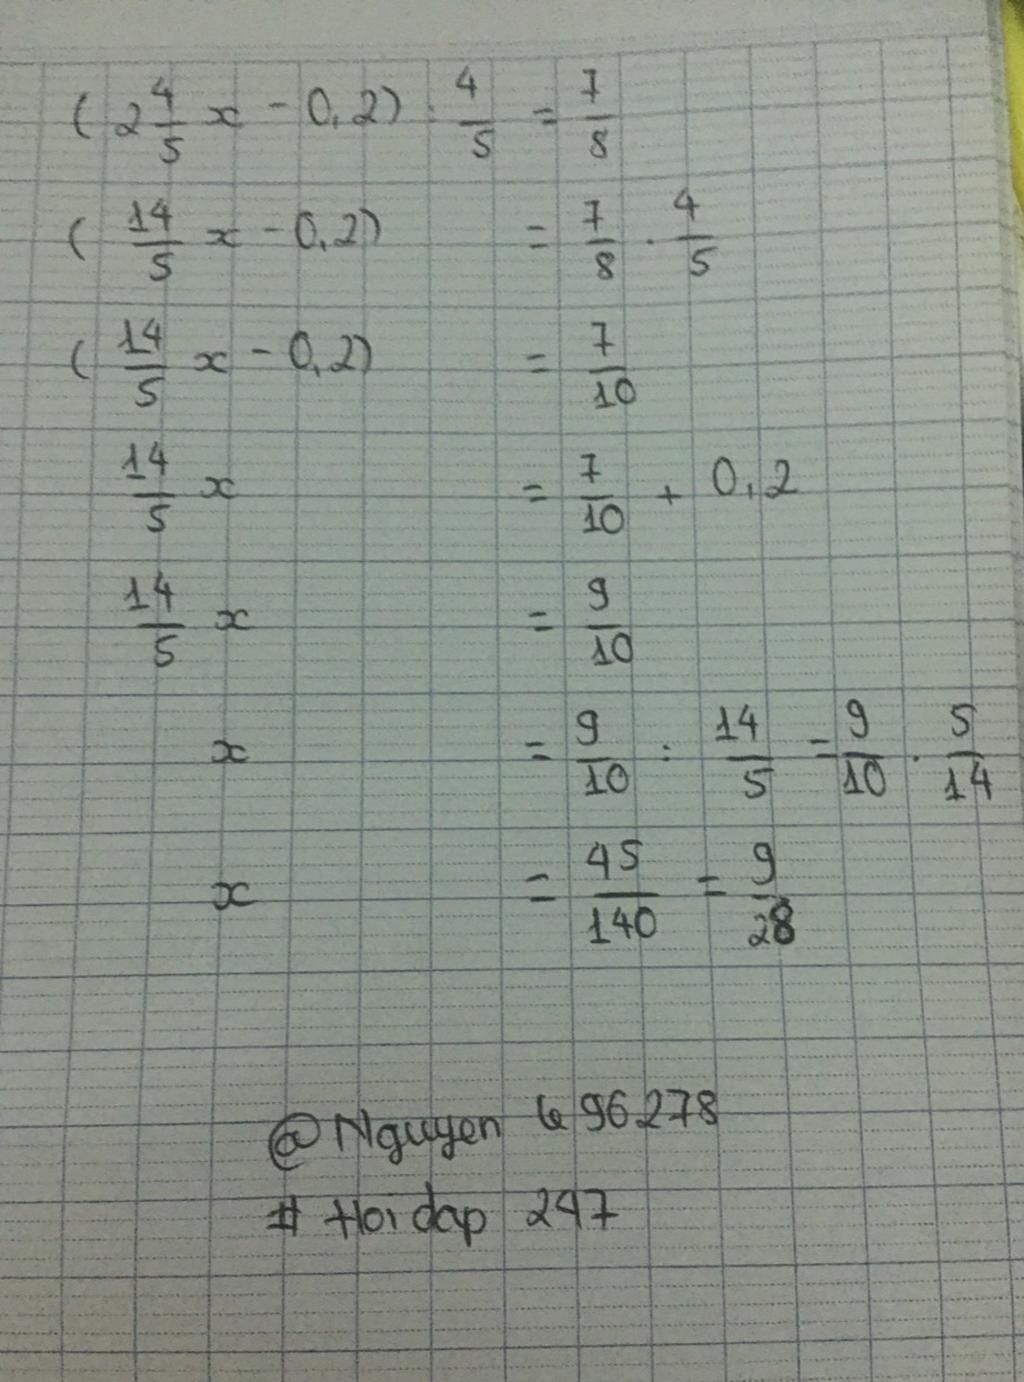 ( 2 4/5 x - 0,2) : 4/5 = 7/8
( 14/5 x - 0,2) = 7/8 . 4/5
( 14/5 x - 0,2) = 7/10
14/5 x = 7/10 + 0,2
14/5 x = 9/10
x = 9/10 : 14/5 = 9/10 . 5/14
x = 45/140 = 9/28
@Nguyen 696278
# Hoidap 247